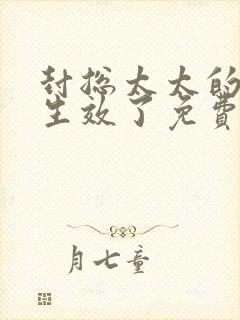 封总太太的
生效了免费
月七童